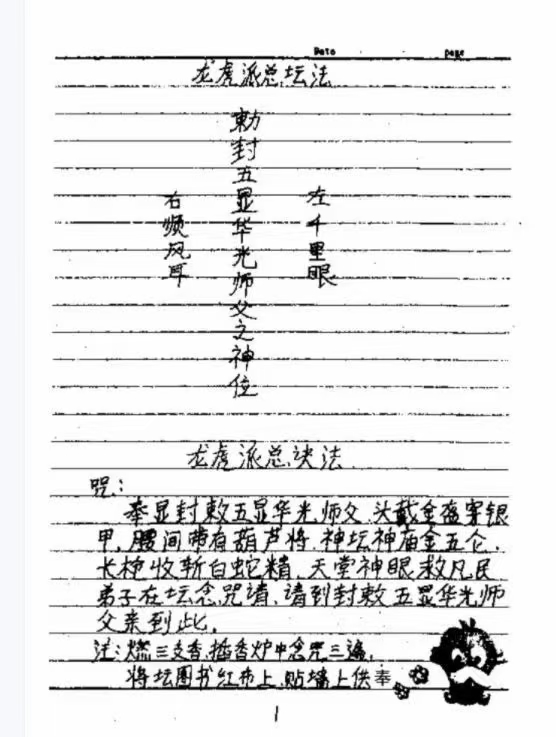 Date page
龙虎派总坛法
勅封五显华光师父之神位
左千里眼
右顺风耳
龙虎派总诀法
咒:
奉显封敕五显华光师父,头戴金盔穿银
甲,腰间带有葫芦将,神坛神庙金五仑,
长枪收斩白蛇精,天堂神眼救凡民
弟子在坛念咒请,请到封敕五显华光师
父亲到此。
注:燃三支香,插香炉中念咒三遍,
将坛图书红布上,贴墙上供奉
1